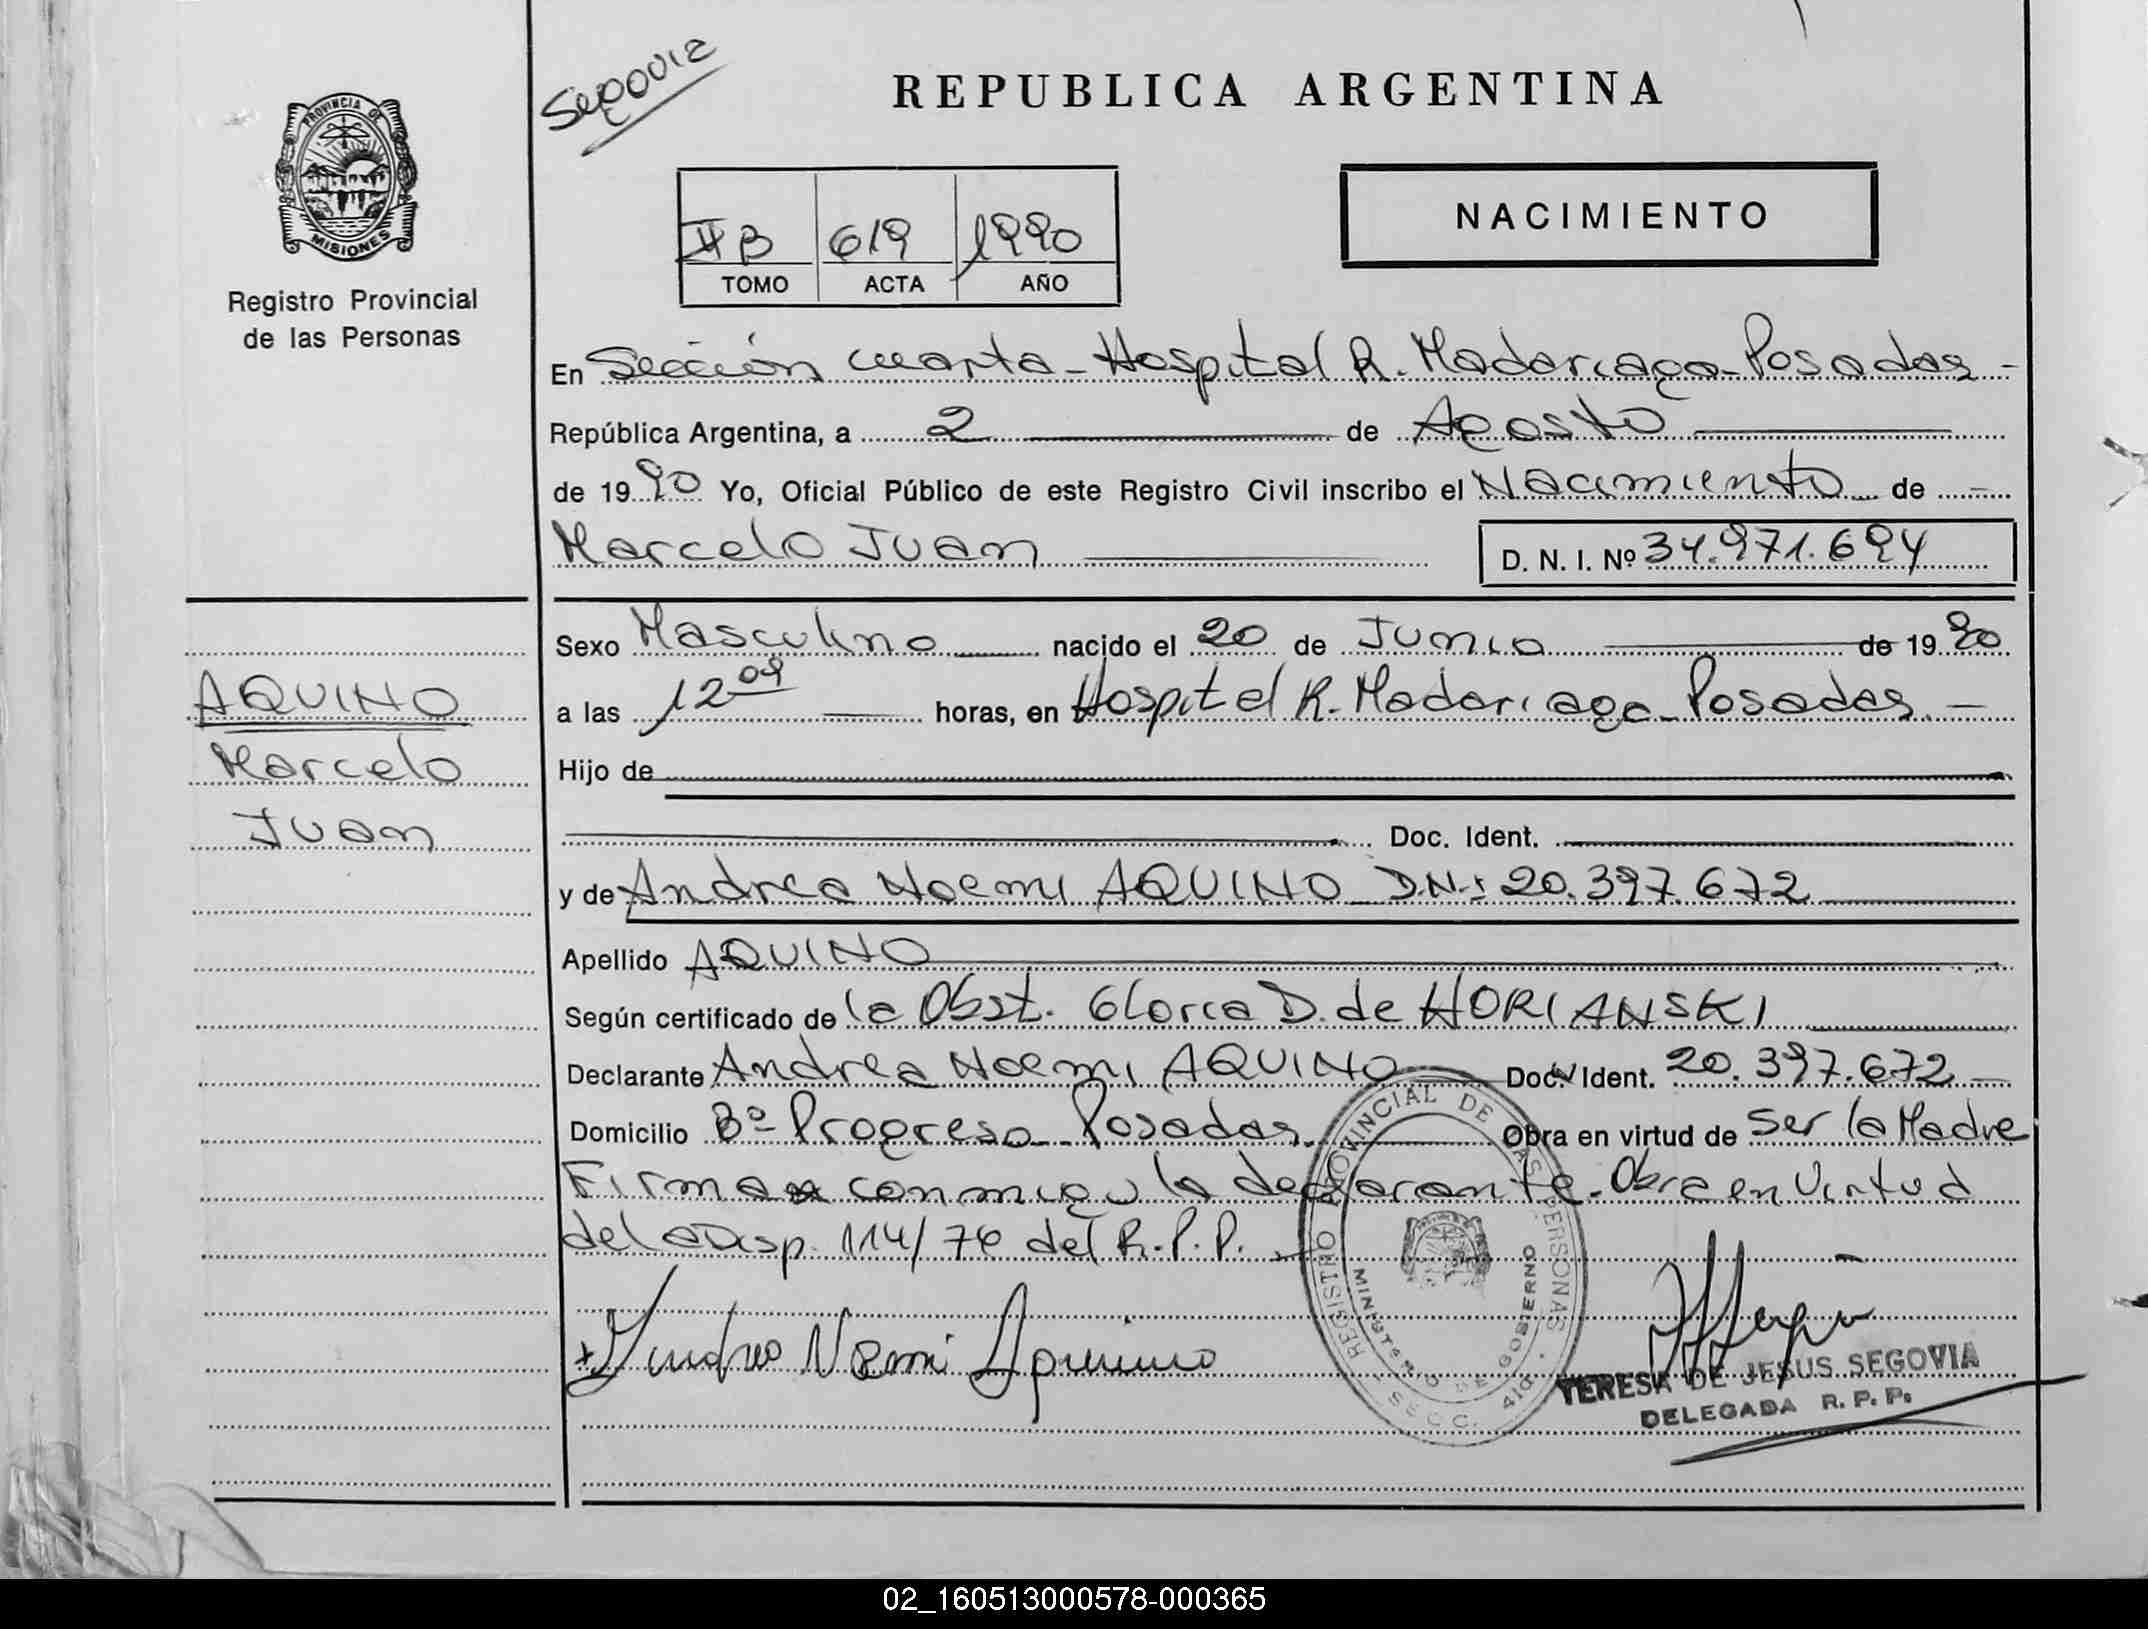 Segovia
REPUBLICA ARGENTINA
PROVINCIA DE
MISIONES
Registro Provincial
de las Personas
NACIMIENTO
II B 619 1990
TOMO ACTA AÑO
En Sección cuarta - Hospital R. Madariaga - Posadas -
República Argentina, a 2 de Agosto
de 1990 Yo, Oficial Público de este Registro Civil inscribo el Nacimiento de
Marcelo Juan D. N. I. Nº 34.971.694
Sexo Masculino nacido el 20 de Junio de 1990
a las 12 09 horas, en Hospital R. Madariaga - Posadas. -
AQUINO
Marcelo
Juan
Hijo de
Doc. Ident.
y de Andrea Noemi AQUINO D.N.I 20.397.672
Apellido AQUINO
Según certificado de la Obst. Gloria D. de HORIANSKI
Declarante Andrea Noemi AQUINO Doc. Ident. 20.397.672
Domicilio Bº Progreso - Posadas. Obra en virtud de Ser la Madre
Firma conmigo la declarante. Obra en Virtud
de la Disp. 114/76 del R.P.P.
Andrea Noemi Aquino
REGISTRO PROVINCIAL DE LAS PERSONAS
MINISTERIO DE GOBIERNO
SECC. 4ta.
TERESA DE JESUS SEGOVIA
DELEGADA R. P. P.
02_160513000578-000365